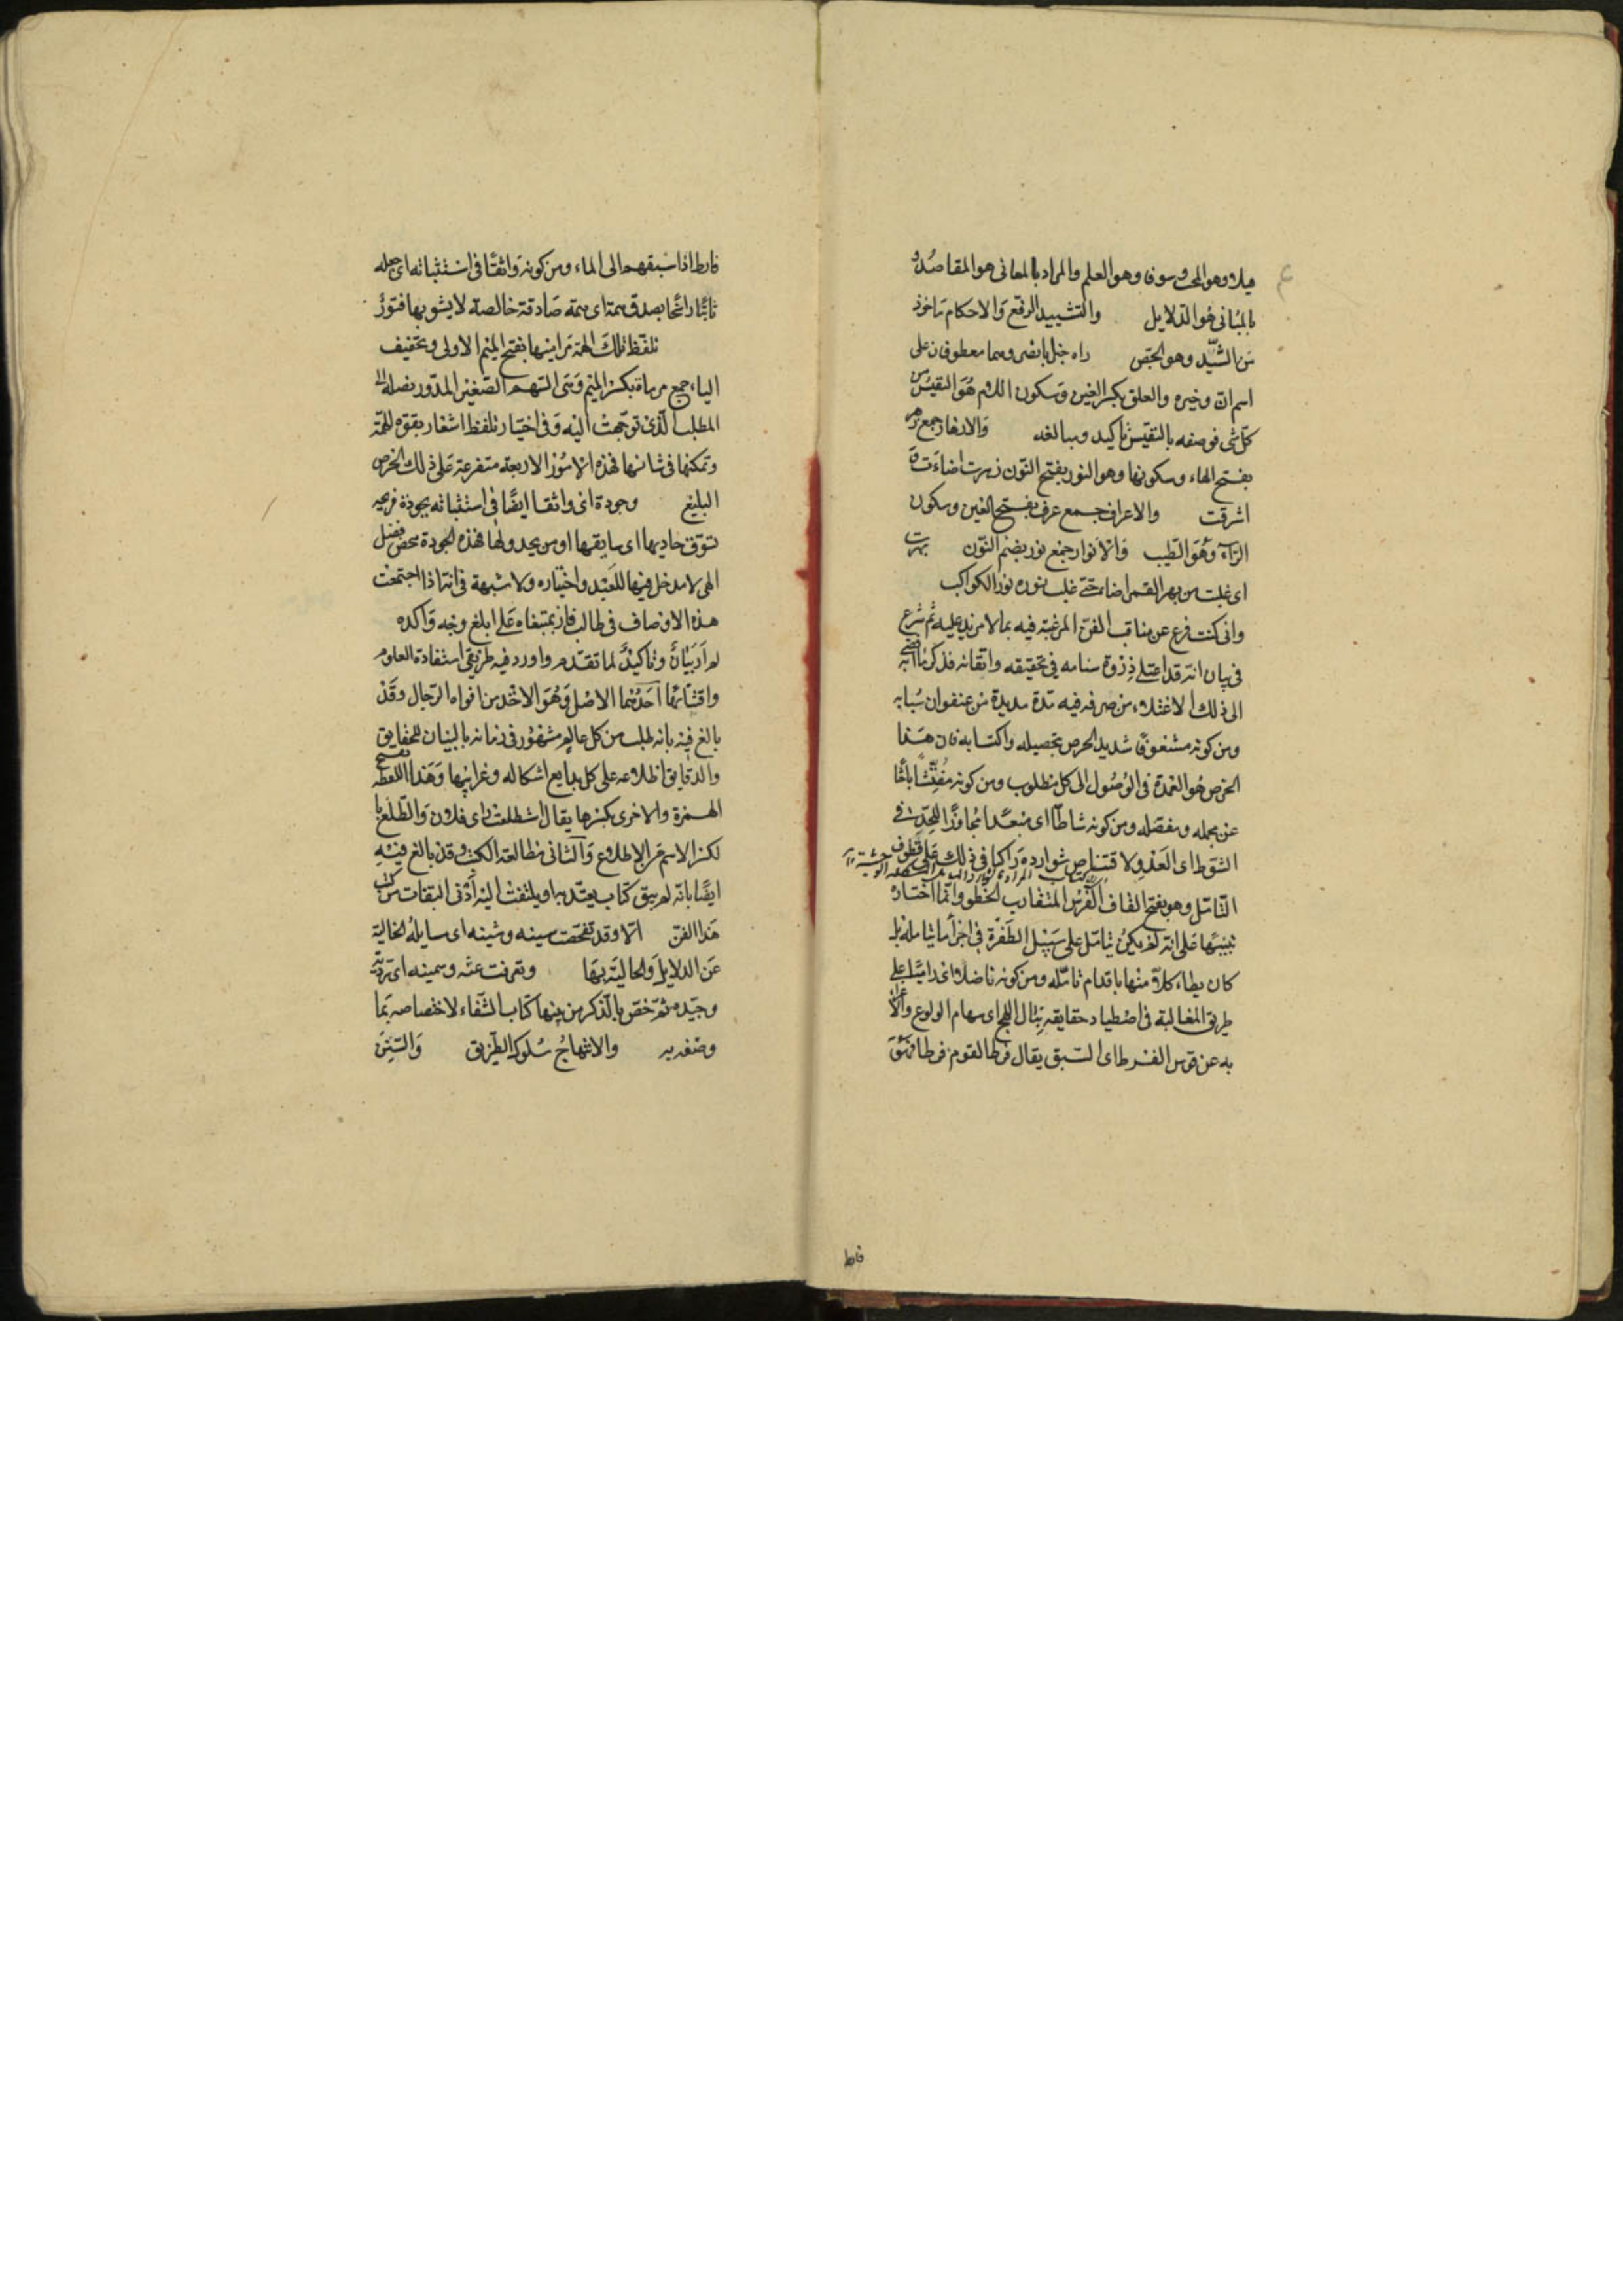 ميلا وهو المحب وسوفا وهو العلم والمراد بالمعانى هو المقاصد و
بالمبانى هو الدلايل والتشييد الرفع والاحكام ماخوذ
من الشيد وهو الجص
اسم ان وخبره والعلق بكسر العين وسكون اللام هو النفيس من
كل شى فوصفه بالنفيس تاكيد ومبالغه والازهار جمع زهر
بفتح الهاء وسكونها وهو النور بفتح النون زهرت اضاءت
اشرقت والاعراف جمع عرف بفتح العين وسكون
الراء وهو الطيب والانوار جمع نور بضم النون بهرت
اى غلبت من بهر القمر اضاء حتى غلب نوره نور الكواكب
وانى كنت فرغ عن مناقب الفن المرغبة فيه بما لا مزيد عليه ثم شرع
فى بيان انه قد اعتلى ذروة سنامه فى تحقيقه واتقانه فذكر ما افضى به
الى ذلك الاعتلاء من صرفه فيه مدة مديدة من عنفوان شبابه
ومن كونه مشغوفا شديد الحرص بتحصيله واكتسابه فان هذا
الحرص هو العمدة فى الوصول الى كل مطلوب ومن كونه مفتشا باحثا
عن مجمله ومفصله ومن كونه شاطا اى مبعدا مجاوزا للحد فى
الشوط اى العدو لاقتناص شوارده راكبا فى ذلك على قطوف
التامل وهو بفتح القاف الفرس المتقارب الخطو وانما اختاره
تنبيها على انه لم يكن تامل على سبيل الطفرة فى اجزاء ما يتامله بل
كان يطاء كلا منها باقدام تامله ومن كونه ناضلا اى راميا على
طريق المغالبة فى اصطياد حقايقه بنبال اللهج اى سهام الولوع
به عن قوس الفرط اى السبق يقال فرط القوم فرطا
فارط
فارط اذا سبقهم الى الماء ومن كونه واثقا فى استثباته اى جعله
ثابتا راسخا بصدق همة اى همة صادقة خالصة لا يشوبها فتور
تلفظ تلك الهمة مراميها بفتح الميم الاولى وتخفيف
الياء جمع مرماة بكسر الميم وهى السهم الصغير المدور نصله الى
المطلب الذى توجهت اليه وفى اختيار تلفظ اشعار بقوة الهمة
وتمكنها فى شانها فهذه الامور الاربعة متفرعة على ذلك الحرص
البليغ وجودة اى واثقا ايضا فى استثباته بجودة قريحه
تسوق حاديها اى سايقها او من يحدو لها فهذه الجودة محض فضل
الهى لا مدخل فيها للعبد واختياره ولا شبهة فى انه اذا اجتمعت
هذه الاوصاف فى طالب فاز بمبتغاه على ابلغ وجه واكده
لم ار بيان وتاكيد لما تقدم واورد فيه طريقى استفادة العلوم
واقتنائها احدهما الاصل وهو الاخذ من افواه الرجال وقد
بالغ فيه بانه طلب من كل عالم مشهور فى زمانه بالبيان للحقايق
والدقايق اطلاعه على كل بدايع اشكاله وغرايبها وهذا اللفظ بفتح
الهمزة والاخرى بكسرها يقال استطلعت راى فلان والطلع با
لكسر الاسم من الاطلاع والثانى مطالعة الكتب وقد بالغ فيه
ايضا بانه لم يبق كتاب يعتد به او يلتفت اليه ادنى التفات من كتب
هذا الفن الا وقد تفحصت سينه وشينه اى سايله الخالية
عن الدلايل والحالية بها وتعرفت غثه وسمينه اى رديه
وجيده ثم خص بالذكر من بينها كتاب الشفاء لاختصاصه بما
وصفه به والانتهاج سلوك الطريق والسنن